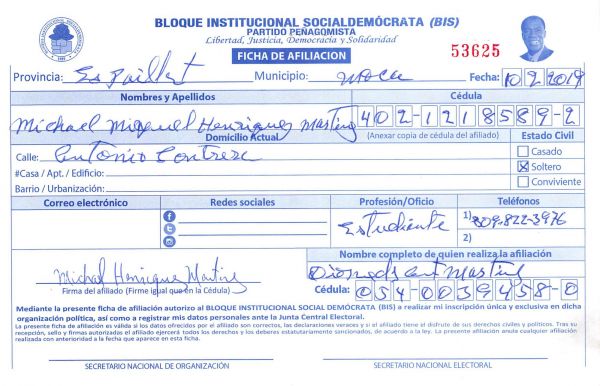 BLOQUE INSTITUCIONAL SOCIALDEMÓCRATA (BIS)
PARTIDO PEÑAGOMISTA
Libertad, Justicia, Democracia y Solidaridad
FICHA DE AFILIACION
53625
Provincia: Espaillat Municipio: Moca Fecha: 10 2 2019
Nombres y Apellidos Cédula
Michael Miguel Henriquez Martinez 402-1218589-2
Domicilio Actual (Anexar copia de cédula del afiliado) Estado Civil
Calle: Antonio Contrera Casado
#Casa / Apt. / Edificio: Soltero
Barrio / Urbanización: Conviviente
Correo electrónico Redes sociales Profesión/Oficio Teléfonos
Estudiante 1) 809-822-3976
2)
Nombre completo de quien realiza la afiliación
Michael Henriquez Martinez Martinez
Firma del afiliado (Firme igual que en la Cédula) Cédula: 054-0039458-0
Mediante la presente ficha de afiliación autorizo al BLOQUE INSTITUCIONAL SOCIAL DEMÓCRATA (BIS) a realizar mi inscripción única y exclusiva en dicha
organización política, así como a registrar mis datos personales ante la Junta Central Electoral.
La presente ficha de afiliación es válida si los datos ofrecidos por el afiliado son correctos, las declaraciones veraces y si el afiliado tiene el disfrute de sus derechos civiles y políticos. Tras su
recepción, sello y firmas autorizadas el afiliado ejercerá todos los derechos y los deberes estatutariamente sancionados, de acuerdo a la ley. La presente afiliación anula cualquier afiliación
realizada con anterioridad a la fecha que aparece en esta ficha.
SECRETARIO NACIONAL DE ORGANIZACIÓN SECRETARIO NACIONAL ELECTORAL